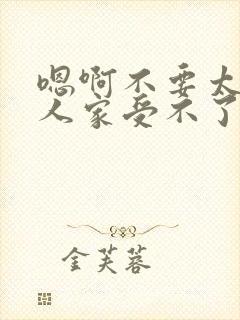 嗯啊不要太
人家受不了
金芙蓉